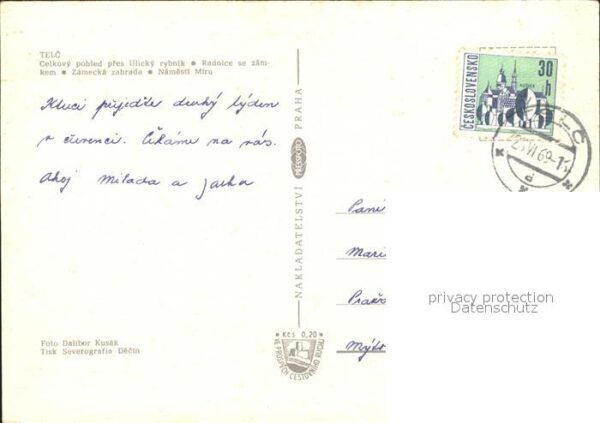 TELČ
Celkový pohled přes Ulický rybník ● Radnice se zám-
kem ● Zámecká zahrada ● Náměstí Míru
Kluci přijeďte druhý týden
v červenci. Čekáme na vás.
Ahoj Milada a Jarka
Foto Dalibor Kusák
Tisk Severografia Děčín
NAKLADATELSTVÍ PRESSFOTO PRAHA
Kčs 0,20
VE PROSPĚCH CESTOVNÍHO RUCHU
ČESKOSLOVENSKO
30
h
Paní
Mari
Mýto
privacy protection
Datenschutz